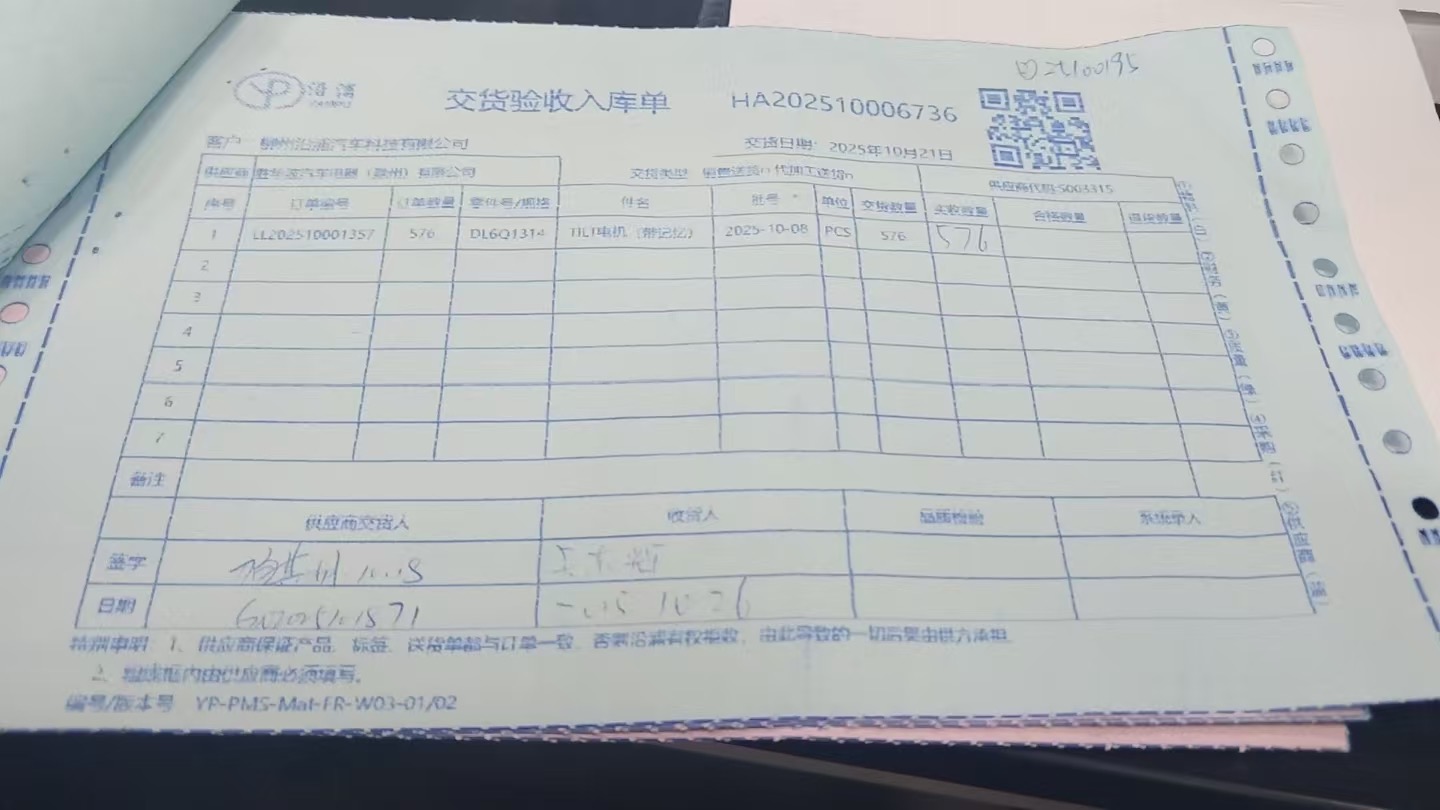 YP 沿浦
交货验收入库单 HA202510006736
客户 柳州沿浦汽车科技有限公司 交货日期: 2025年10月21日
供应商 胜华波汽车电器（滁州）有限公司 交货类型 销售送货□ 代加工送货□ 供应商代码:S003315
序号 订单编号 订单数量 零件号/规格 件名 批号 单位 交货数量 实收数量 合格数量 退货数量
1 LL202510001357 576 DL6Q1314 TILT电机（带记忆） 2025-10-08 PCS 576 576
2
3
4
5
6
7
备注
供应商交货人 收货人 品质检验 系统录入
签字
日期
特别申明 1、供应商保证产品、标签、送货单都与订单一致，否则沿浦有权拒收，由此导致的一切后果由供方承担
2、粗线框内由供应商必须填写。
编号/版本号 YP-PMS-Mat-FR-W03-01/02